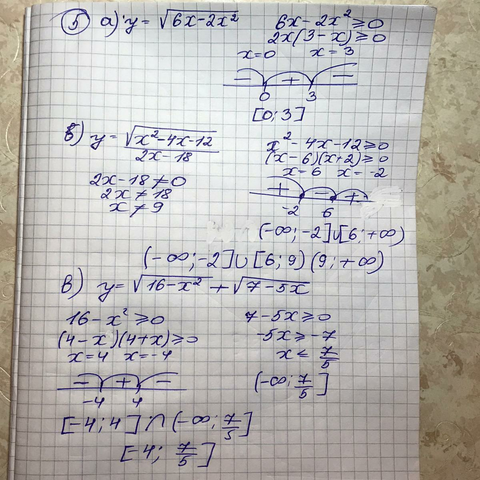 ⑤ а) y = √(6x-2x²)   6x-2x² ≥ 0
2x(3-x) ≥ 0
x=0   x=3
-   +   -
0   3
[0; 3]
б) y = √(x²-4x-12) / (2x-18)   x²-4x-12 ≥ 0
(x-6)(x+2) ≥ 0
2x-18 ≠ 0   x=6   x=-2
2x ≠ 18   +   -   +
x ≠ 9   -2   6
(-∞; -2]∪[6; +∞)
(-∞; -2]∪[6; 9) (9; +∞)
в) y = √(16-x²) + √(7-5x)
16-x² ≥ 0   7-5x ≥ 0
(4-x)(4+x) ≥ 0   -5x ≥ -7
x=4   x=-4   x ≤ 7/5
-   +   -   (-∞; 7/5]
-4   4
[-4; 4] ∩ (-∞; 7/5]
[-4; 7/5]